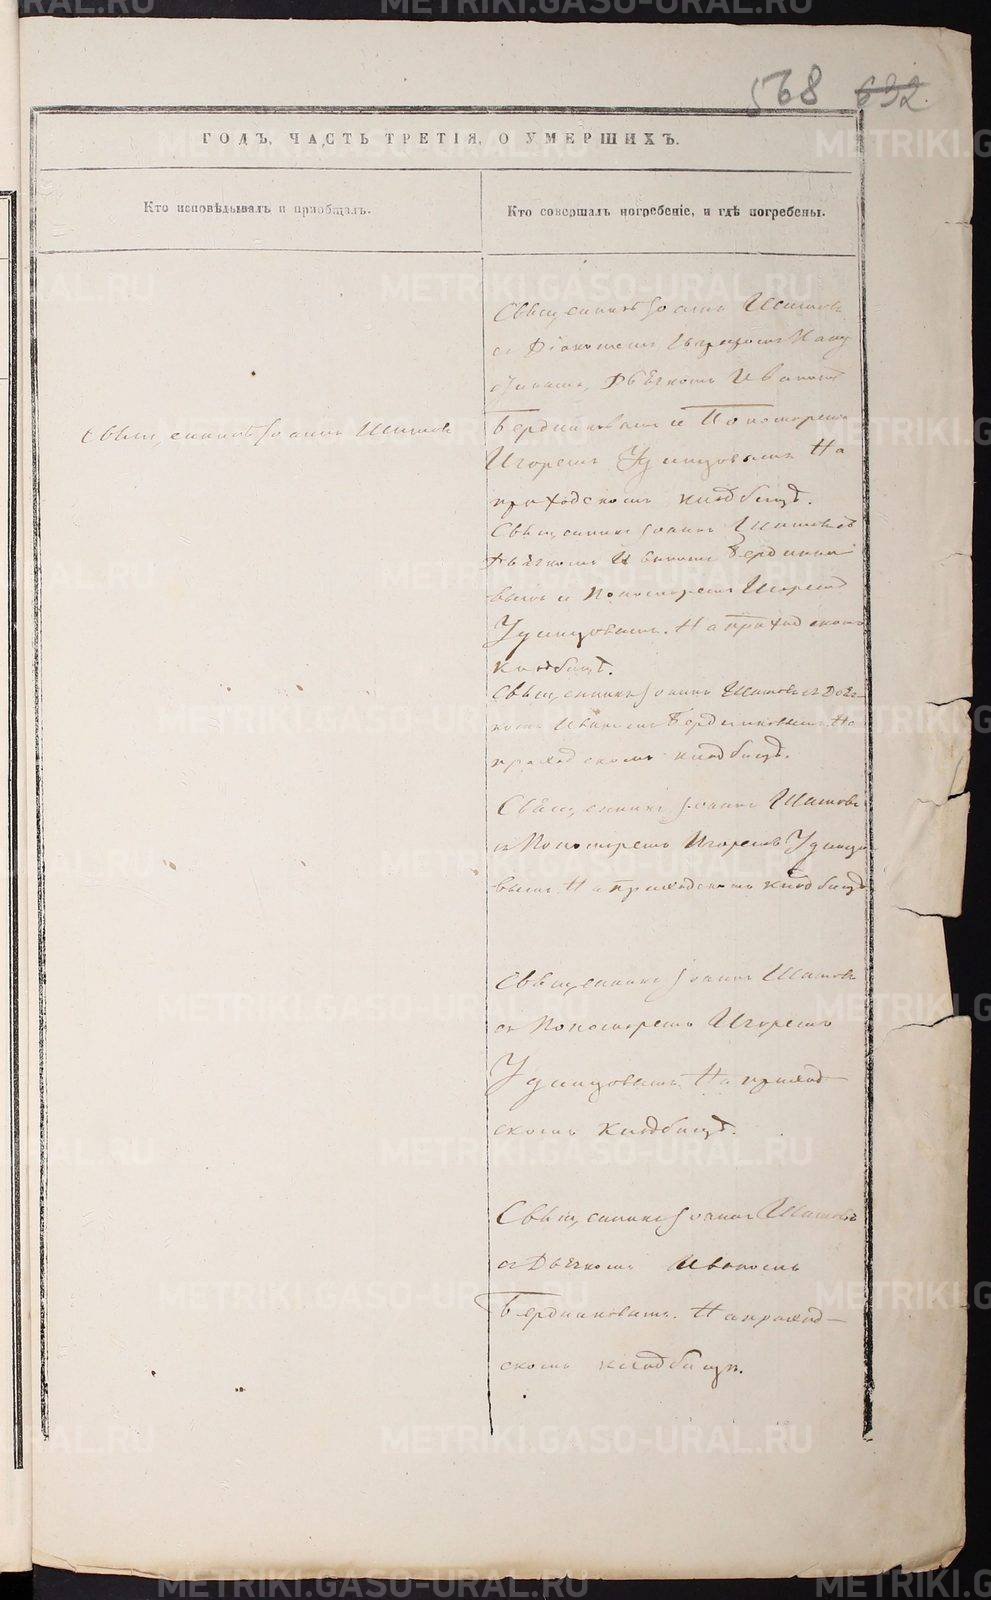 568 632.
ГОДЪ, ЧАСТЬ ТРЕТІЯ, О УМЕРШИХЪ.
Кто исповѣдывалъ и пріобщалъ.
Кто совершалъ погребеніе, и гдѣ погребены.
Священникъ Іоаннъ Шишовъ
Священникъ Іоаннъ Шишовъ
съ Діакономъ
Дьячкомъ Иваномъ
Бердниковымъ и Пономаремъ
Игоремъ Удинцовымъ На
приходскомъ кладбищѣ.
Священникъ Іоаннъ Шишовъ съ
Дьячкомъ Иваномъ Бердники
вымъ и Пономаремъ Игоремъ
Удинцовымъ. На приходскомъ
кладбищѣ.
Священникъ Іоаннъ Шишовъ съ Дьяч
комъ Иваномъ Бердниковымъ. На
приходскомъ кладбищѣ.
Священникъ Іоаннъ Шишовъ
съ Пономаремъ Игоремъ Удинцо
вымъ На приходскомъ кладбищѣ
Священникъ Іоаннъ Шишовъ
съ Пономаремъ Игоремъ
Удинцовымъ. На приход
скомъ кладбищѣ.
Священникъ Іоаннъ Шишовъ
съ Дьячкомъ Иваномъ
Бердниковымъ. На приход-
скомъ кладбищѣ.
METRIKI.GASO-URAL.RU